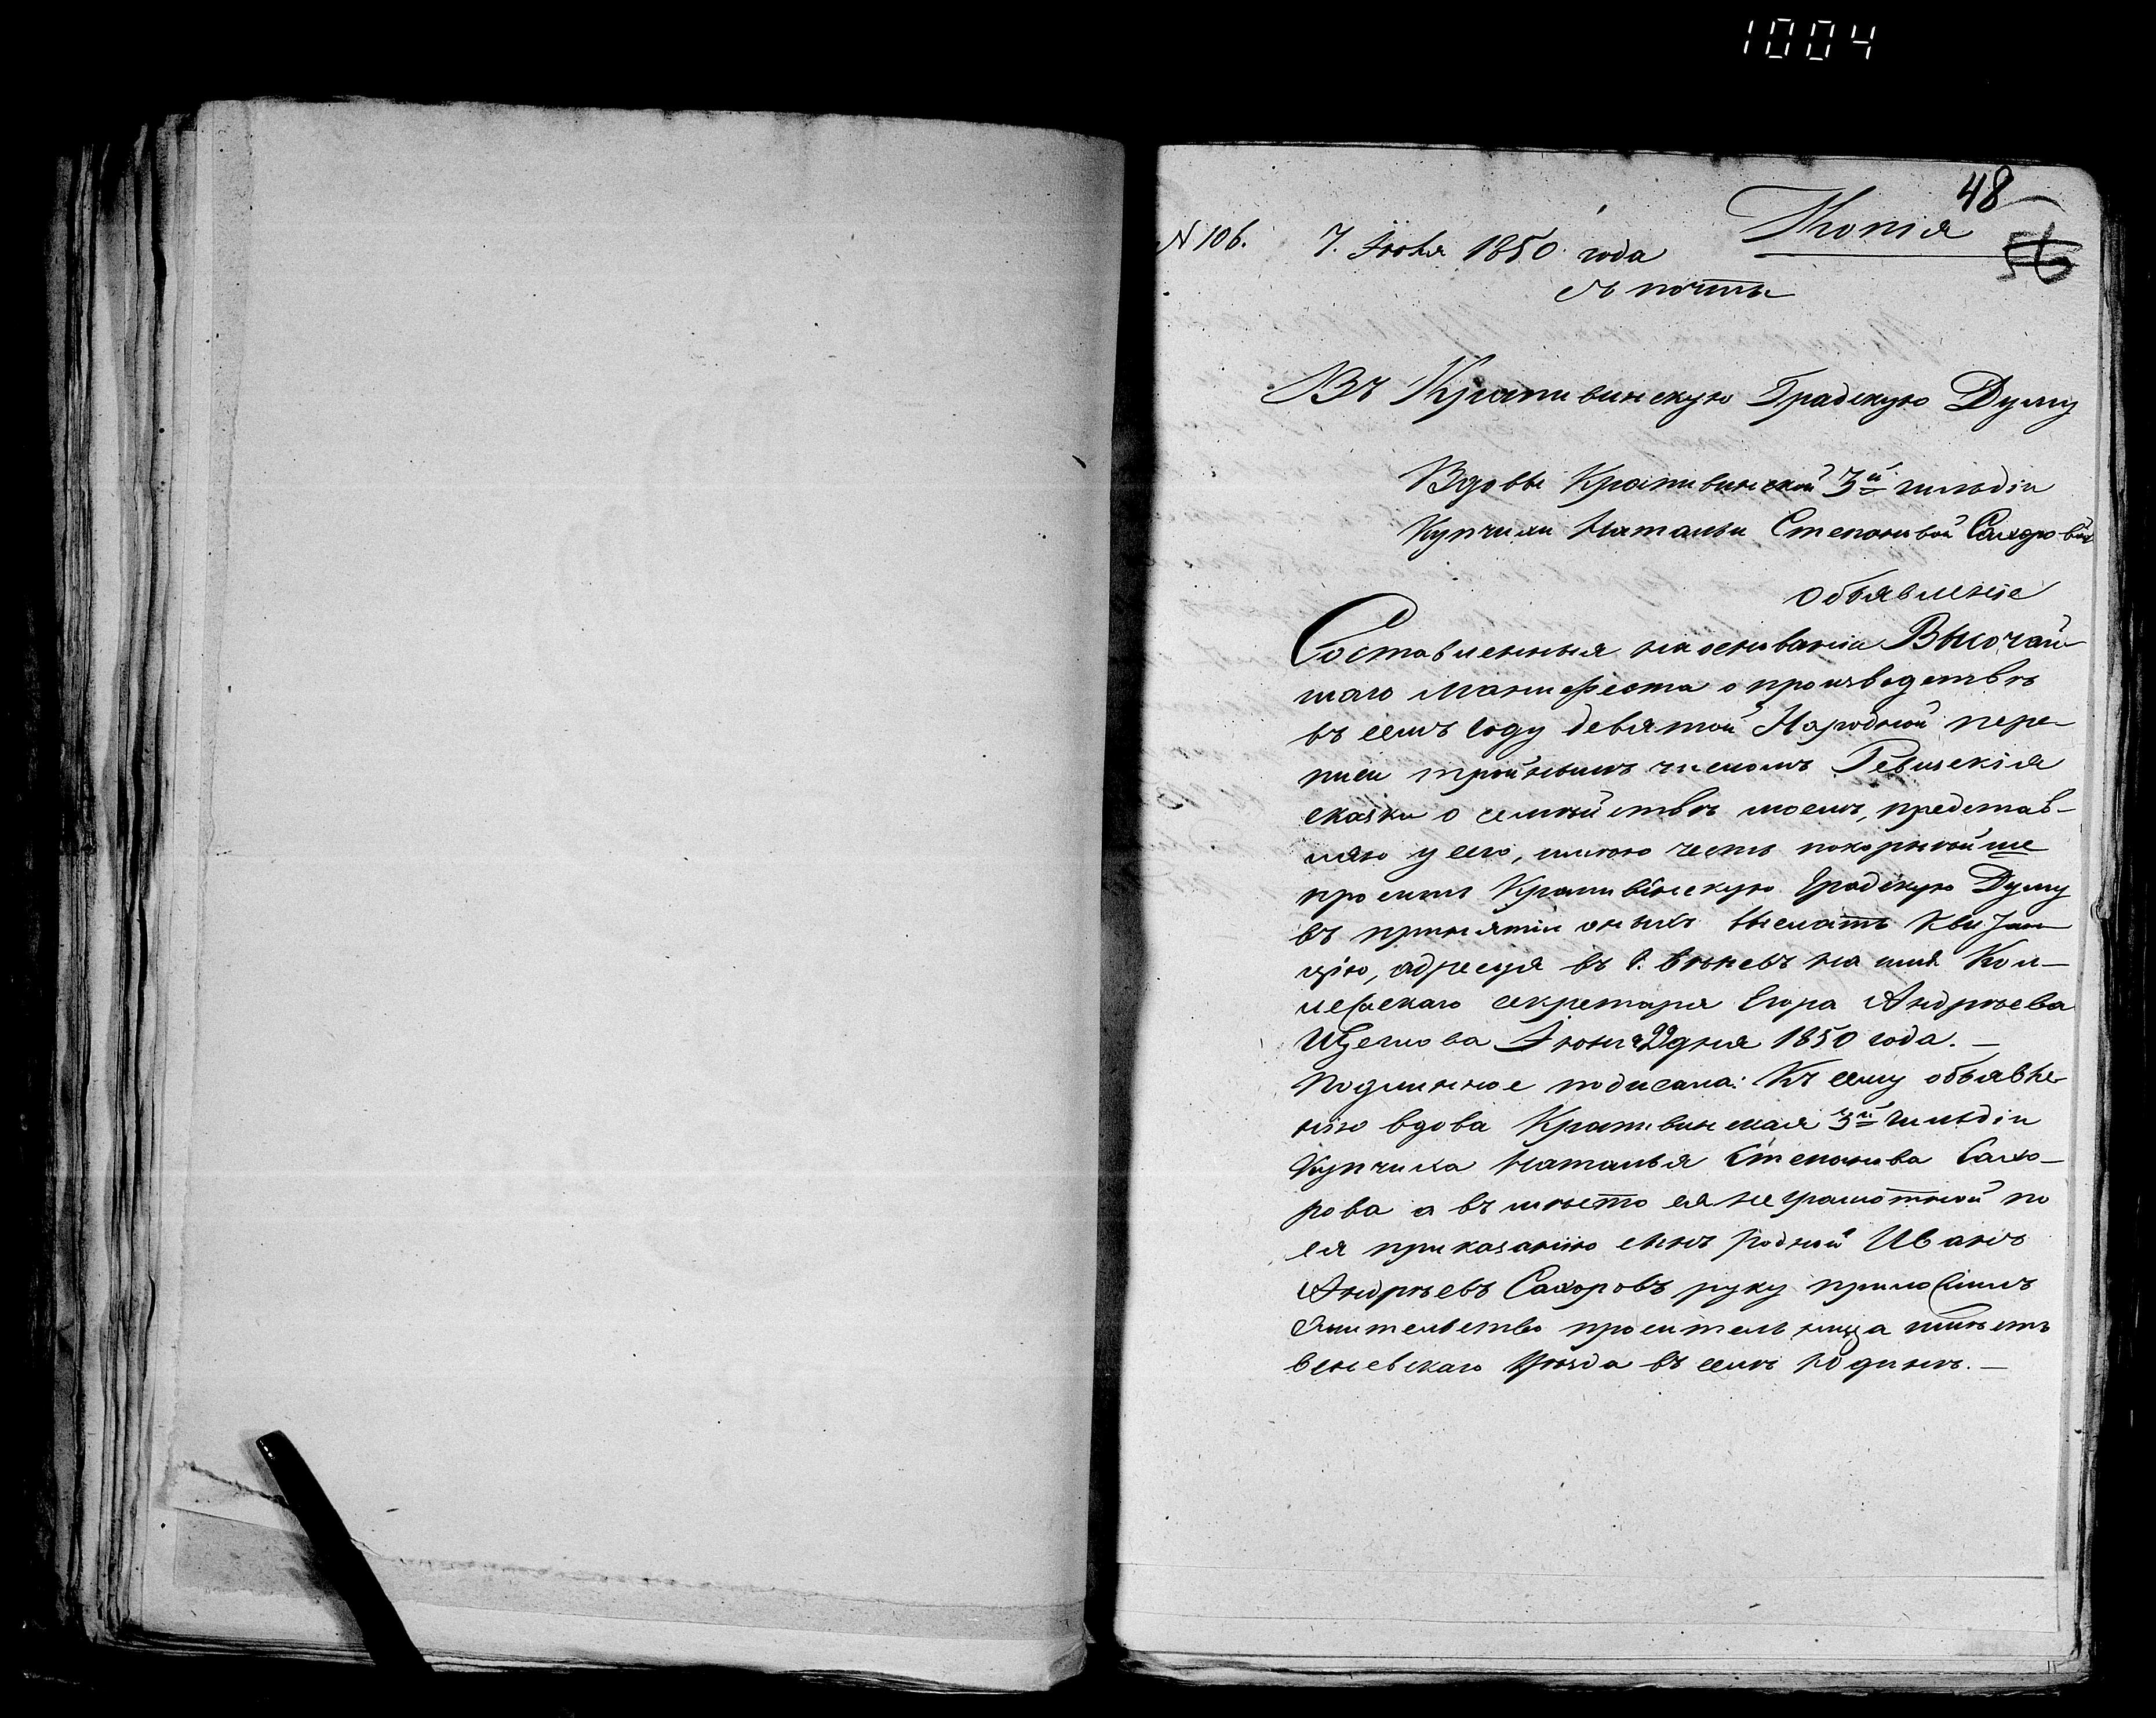 1004
48
Копія
56
N 106.
7. Іюля 1850 года
съ почты
Въ Крапивинскую Градскую Думу
Вдовы Крапивинской 3й гильдіи
Купчихи Натальи Степановой Сахаровой
Объявленіе
Составленныя на основаніи Высочай-
шаго Манифеста о производствѣ
въ семъ году девятой Народной пере-
писи тройнымъ числомъ Ревизскія
сказки о семѣйствѣ моемъ, представ-
ляю у сего, имѣю честь покорнѣйше
просить Крапивинскую Градскую Думу
въ принятіи оныхъ выслать Квитан-
цію, адресуя въ г. Вѣневъ на имя Кол-
лежскаго секретаря Егора Андрѣева
Щеглова Іюня 22 дня 1850 года. —
Подлинное подписала: Къ сему объявле-
нію вдова Крапивинская 3й гильдіи
Купчиха Наталья Степанова Сахо-
рова а въ мѣсто ея неграмотной по
ея приказанію сынъ родной Иванъ
Андрѣевъ Сахоровъ руку приложилъ
Жительство просительница имѣетъ
Веневскаго Уѣзда въ селѣ